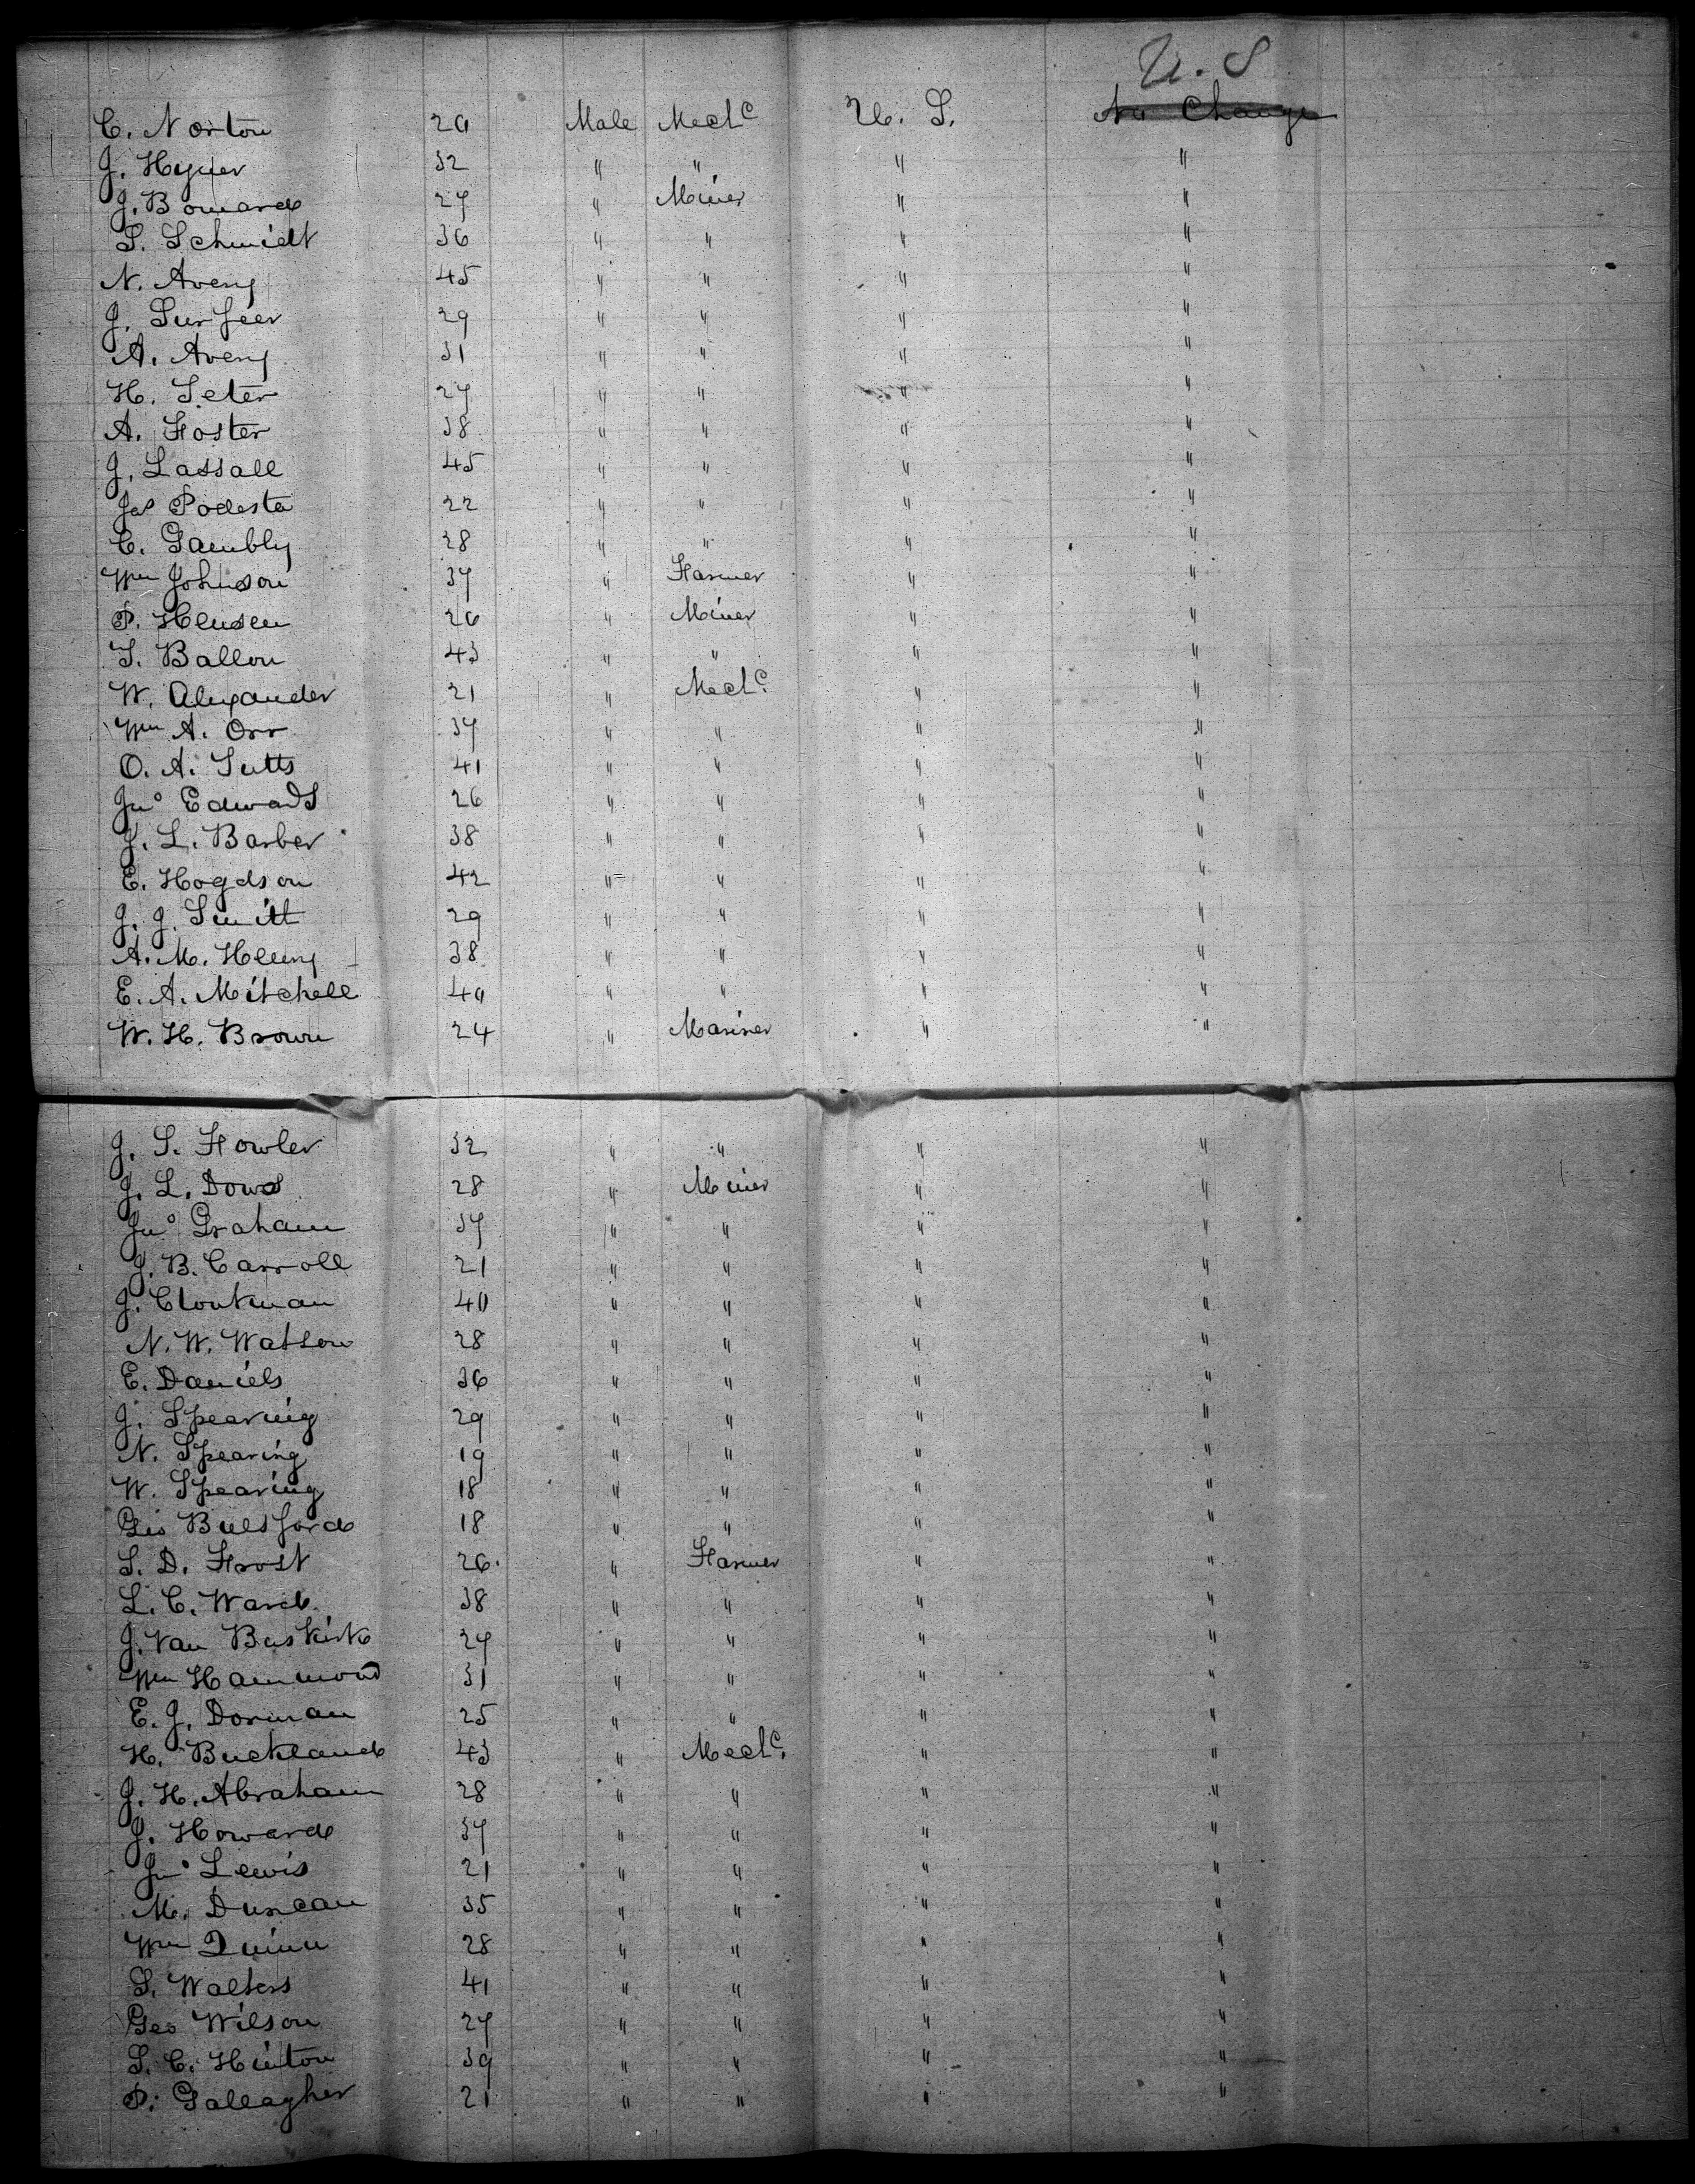 U. S
C. Norton 20 Male Mech.c U. S. No Change
J. Hyner 32 " " " "
J. Bomard 27 " Miner " "
S. Schmidt 36 " " " "
N. Avery 45 " " " "
J. 29 " " " "
A. Avery 31 " " " "
H. Seter 27 " " " "
A. Foster 38 " " " "
J. Lassall 45 " " " "
Jas Podesta 22 " " " "
C. Gambly 28 " " " "
Wm Johnson 37 " Farmer " "
P. Hensen 26 " Miner " "
T. Ballou 43 " " " "
W. Alexander 21 " Mech.c " "
Wm A. Orr 37 " " " "
O. A. 41 " " " "
Jno Edwards 26 " " " "
J. L. Barber 38 " " " "
E. Hogdson 42 " " " "
J. J. Smitt 29 " " " "
A. M. Henry 38 " " " "
E. A. Mitchell 40 " " " "
W. H. Brown 24 " Mariner " "
J. S. Fowler 32 " " " "
J. L. Dows 28 " Miner " "
Jno Graham 37 " " " "
J. B. Carroll 21 " " " "
J. Cloutman 40 " " " "
N. W. Watson 28 " " " "
E. Daniels 36 " " " "
J. Spearing 29 " " " "
N. Spearing 19 " " " "
W. Spearing 18 " " " "
Geo Bulsford 18 " " " "
S. D. Frost 26. " Farmer " "
L. C. Ward 38 " " " "
J. Van Buskirk 27 " " " "
Wm Hammond 31 " " " "
E. J. Dorman 25 " " " "
H. Buckland 43 " Mech.c " "
J. H. Abraham 28 " " " "
J. Howard 37 " " " "
Jno Lewis 21 " " " "
M. Duncan 35 " " " "
Wm Quinn 28 " " " "
S. Walters 41 " " " "
Geo Wilson 27 " " " "
S. C. Hinton 39 " " " "
P. Gallagher 21 " " " "